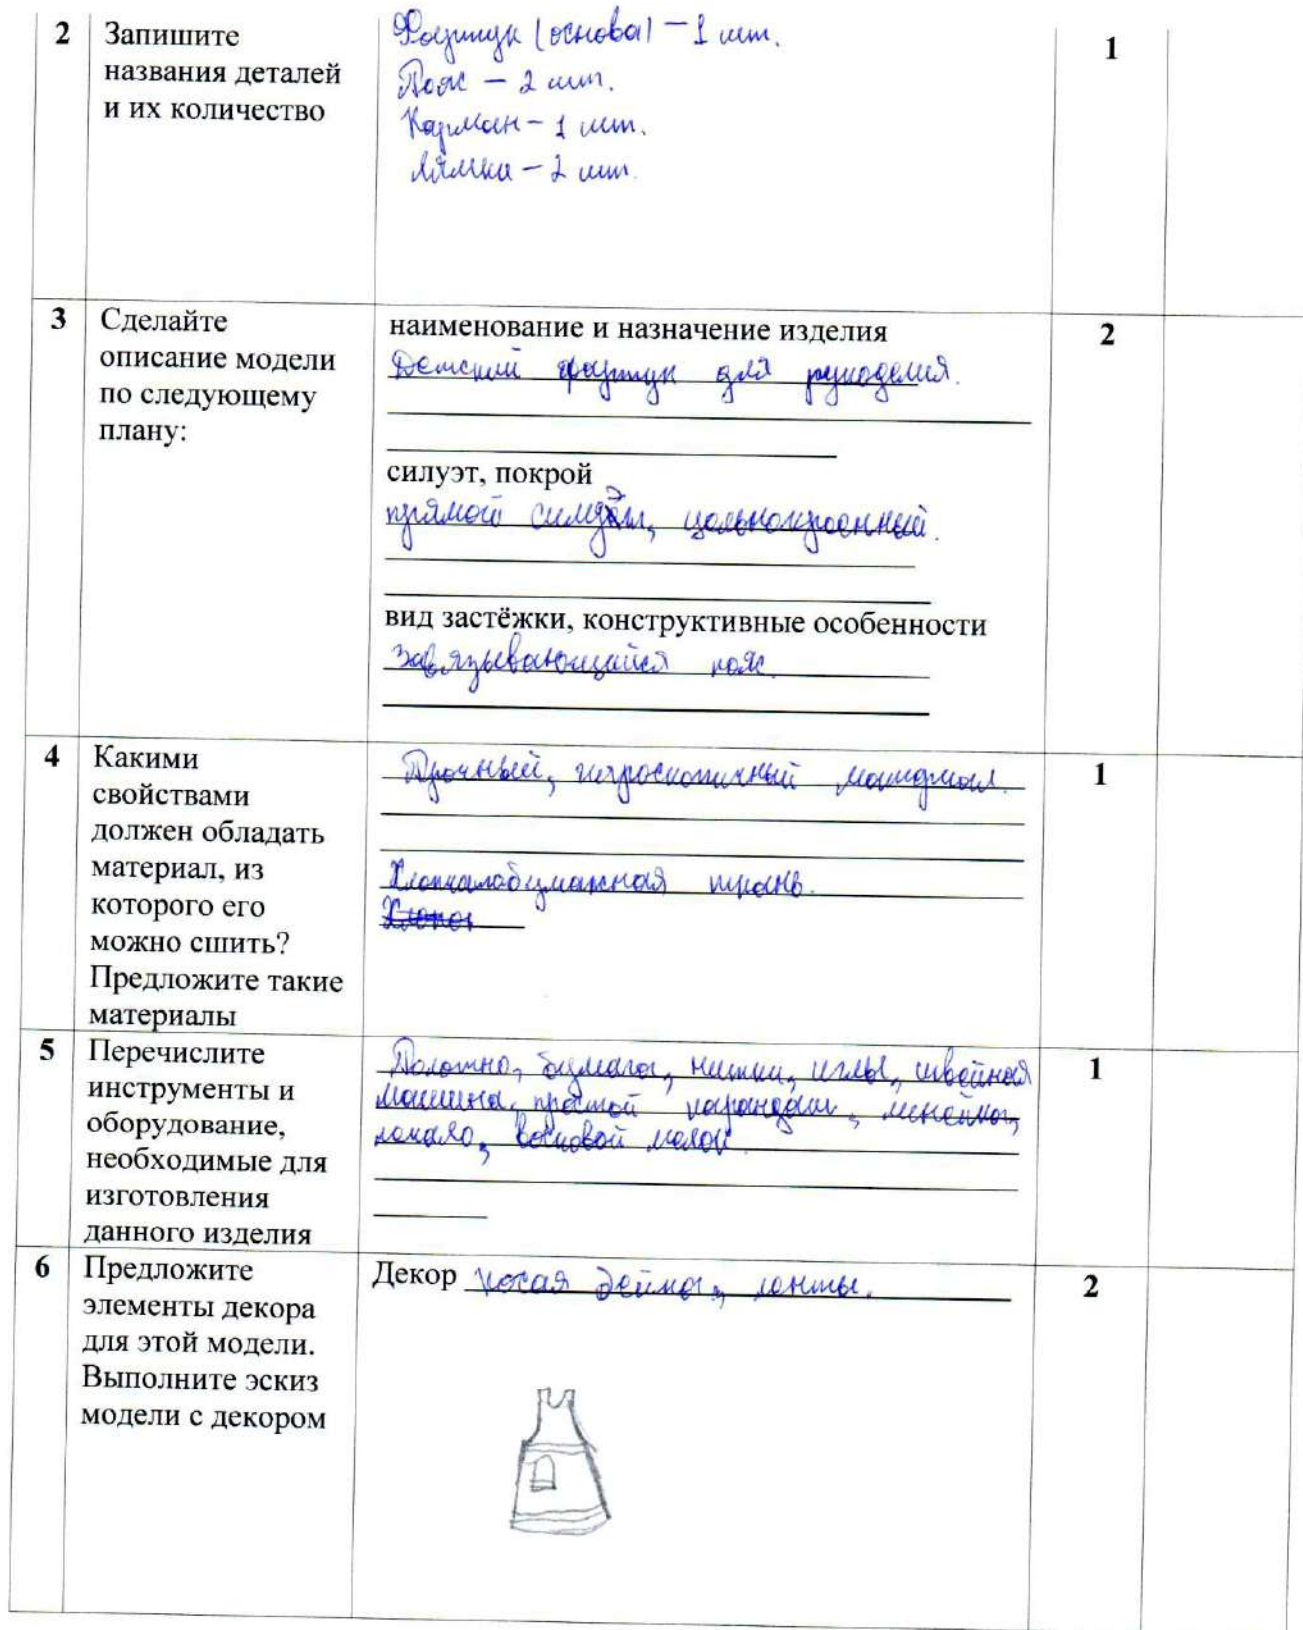 2 Запишите названия деталей и их количество
Фартук (основа) – 1 шт.
Пояс – 2 шт.
Карман – 1 шт.
Лямка – 2 шт.
1
3 Сделайте описание модели по следующему плану:
наименование и назначение изделия
Детский фартук для рукоделия.
силуэт, покрой
прямой силуэт, цольнокроенный.
вид застёжки, конструктивные особенности
Завязывающийся пояс.
2
4 Какими свойствами должен обладать материал, из которого его можно сшить? Предложите такие материалы
Прочный, гигроскопичный материал.
Хлопкалобумажная ткань.
1
5 Перечислите инструменты и оборудование, необходимые для изготовления данного изделия
Полотно, бумага, нитки, иглы, швейная
машина, простой карандаш, линейка,
лекало, восковой мелок.
1
6 Предложите элементы декора для этой модели. Выполните эскиз модели с декором
Декор косая бейка, ленты.
2